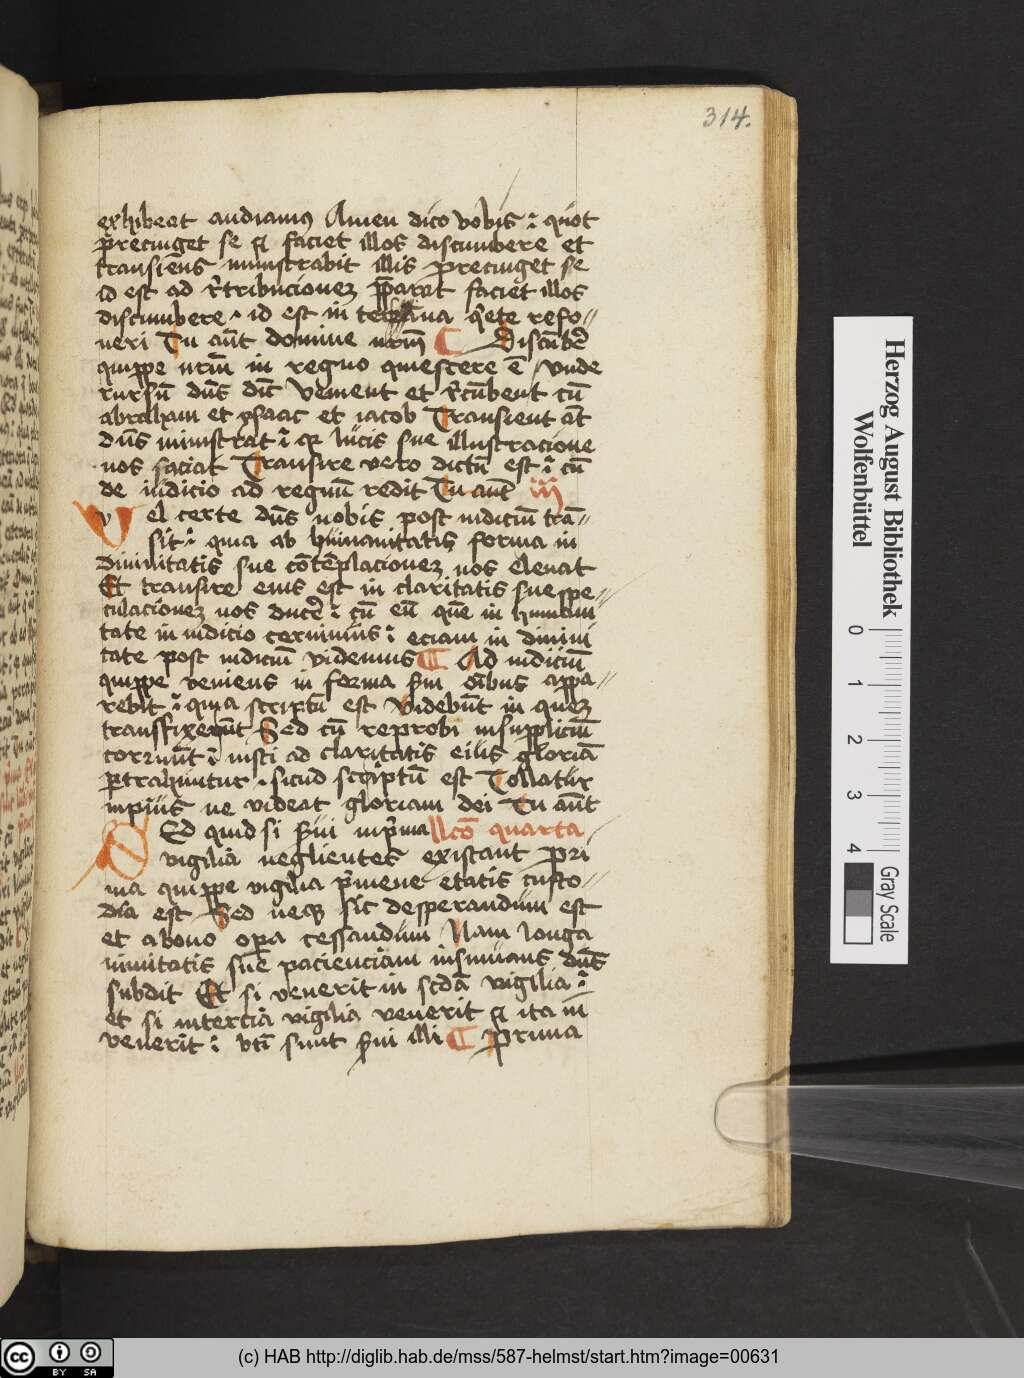 314.
exhibeat audiamus Amen dico vobis : quot
precinget se et faciet illos discumbere et
transiens ministrabit illis precinget se
id est ad rtribucionez pparat faciet illos
discumbere . id est in eterna qiete refo//
ueri Tu aut domine nrm Discuber
quippe nrm in regno quiescere e vnde
rursu dns dic venient et rcubent cu
abraham et ysaac et iacob Transient at
dns ministrat : q lucis sue illustracione
nos saciat Transire vero dictu est : cu
de iudicio ad regnu redit Tu aut iij
Vel certe dns nobis post iudiciu tra//
sit : quia ab humanitatis forma in
diuinitatis sue coteplacionez nos eleuat
Et transire eius est in claritatis sue spe//
culacionez nos ducer : cu eu que in humani
tate in iudicio cernimus : eciam in diuini
tate post iudiciu videmus Ad iudiciu
quippe veniens in forma srui oibus appa//
rebit : quia scriptu est Videbut in quez
transfixerut Sed cu reprobi in suppliciu
corruut : iusti ad claritatis eius gloria
ptrahuntur . sicud scriptu est Tollatur
impius ne videat gloriam dei Tu aut
Sed quid si srui in prima llco quarta
vigilia neglientes existant pri
ma quippe vigilia prmeue etatis custo//
dia est Sed neq sic desperandum est
et a bono opa cessandum Nam longa
nimitatis sue pacienciam insinuans dns
subdit Et si venerit in scda vigilia :
et si in tercia vigilia venerit et ita in
venerit : bti sunt srui illi Prima
Herzog August Bibliothek
Wolfenbüttel
0 1 2 3 4
Gray Scale
cc BY SA
(c) HAB http://diglib.hab.de/mss/587-helmst/start.htm?image=00631